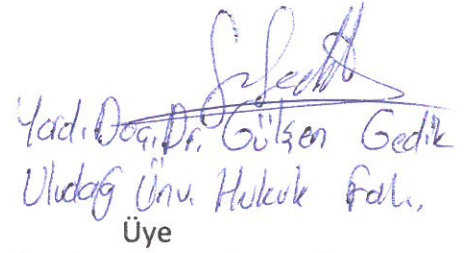 Yard. Doç. Dr. Gülşen Gedik
Uludağ Ünv. Hukuk Fak.
Üye